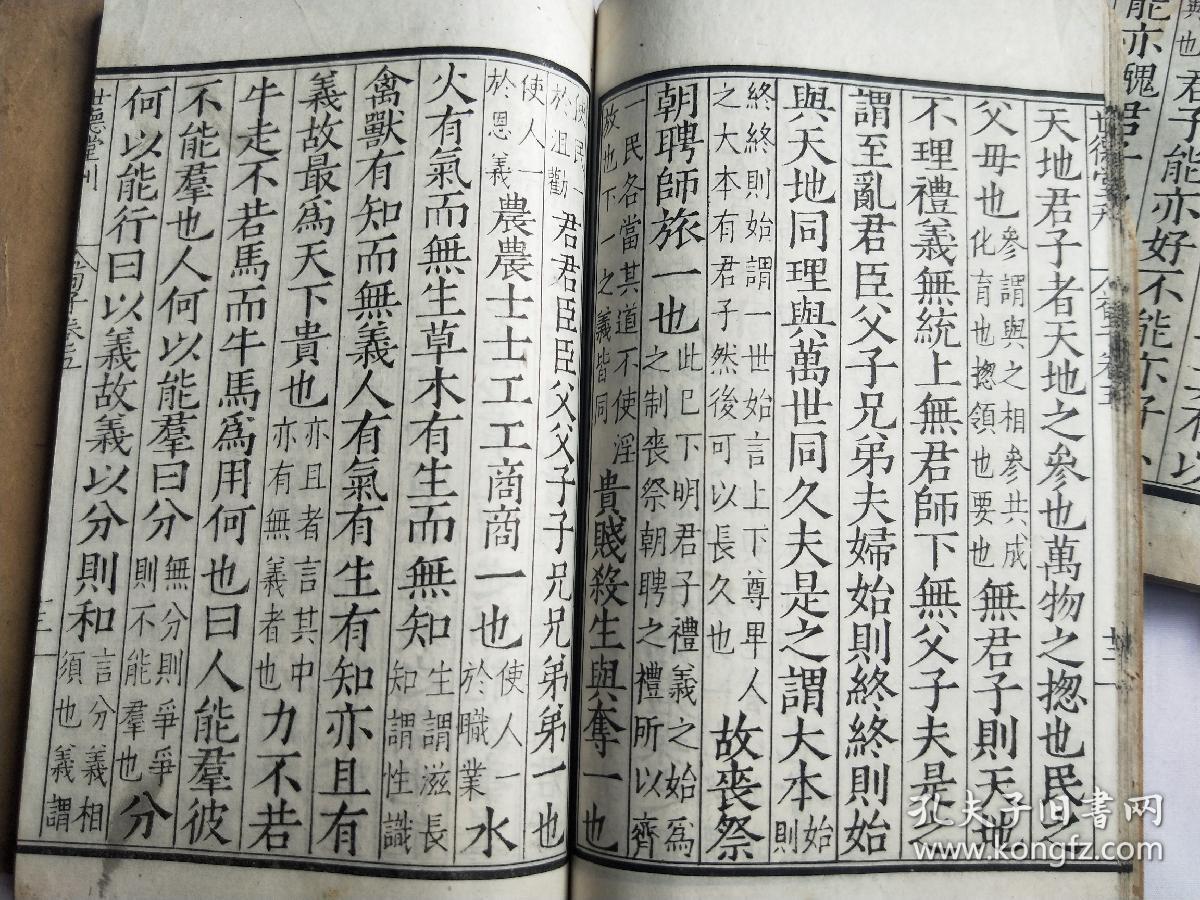 能亦好不能亦
天地君子者天地之參也萬物之揔也民之
父母也參謂與之相參共成化育也揔領也要也無君子則天地
不理禮義無統上無君師下無父子夫是之
謂至亂君臣父子兄弟夫婦始則終終則始
與天地同理與萬世同久夫是之謂大本始則
終終則始謂一世始言上下尊卑人之大本有君子然後可以長久也故喪祭
朝聘師旅一也此已下明君子禮義之始爲之制喪祭朝聘之禮所以齊
一民各當其道不使淫放也下一之義皆同貴賤殺生與奪一也
使民一於沮勸君君臣臣父父子子兄兄弟弟一也
使人一於恩義農農士士工工商商一也使人一於職業水
火有氣而無生草木有生而無知生謂滋長知謂性識
禽獸有知而無義人有氣有生有知亦且有
義故最爲天下貴也亦且者言其中亦有無義者也力不若
牛走不若馬而牛馬爲用何也曰人能羣彼
不能羣也人何以能羣曰分無分則爭爭則不能羣也分
何以能行曰以義故義以分則和言分義相須也義謂
世德堂刊
荀子卷五
孔夫子旧書网
www.kongfz.com